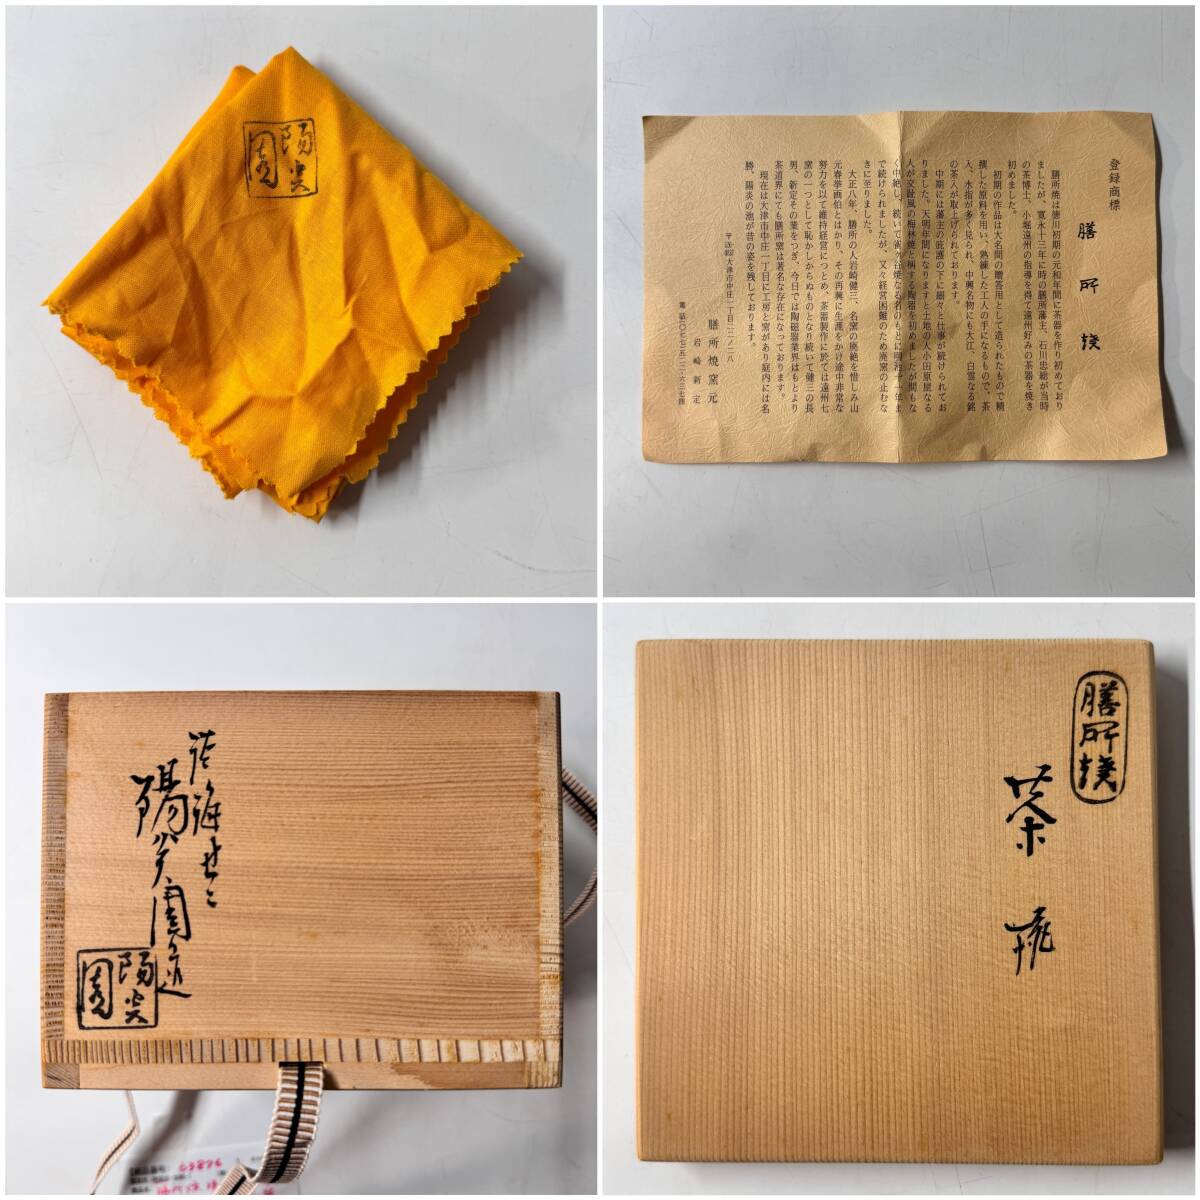 陽炎
園
登録商標
膳所焼
膳所焼は徳川初期の元和年間に茶器を作り初めており
ましたが、寛永十三年に時の膳所藩主、石川忠総が当時
の茶博士、小堀遠州の指導を得て遠州好みの茶器を焼き
初めました。
初期の作品は大名間の贈答用として造られたもので精
撰した原料を用い、熟練した工人の手になるもので、茶
入、水指が多く見られ、中興名物にも大江、白雲なる銘
の茶入が取上げられております。
中期には藩主の庇護の下に細々と仕事が続けられてお
りました。天明年間になりますと土地の人小田原屋なる
人が交趾風の梅林焼と稱する陶器を初めましたが間もな
く中絶し、続いて雀ヶ谷焼なる名のもとに明治十一年ま
で続けられましたが、又々経営困難のため廃窯の止むな
きに至りました。
大正八年、膳所の人岩崎健三、名窯の廃絶を惜しみ山
元春挙画伯とはかり、その再興に生涯をかけ途中非常な
努力を以て維持経営につとめ、茶器製作に於ては遠州七
窯の一つとして恥かしからぬものとなり続いて健三の長
男、新定その業をつぎ、今日では陶磁器業界はもとより
茶道界にても膳所窯は著名な存在になっております。
現在は大津市中庄一丁目に工房と窯があり庭内には名
勝、陽炎の池が昔の姿を残しております。
大津市中庄一丁目二二ノ二八
膳所燒窯元
岩崎新定
陽炎園造
陽炎
園
膳所焼
茶碗